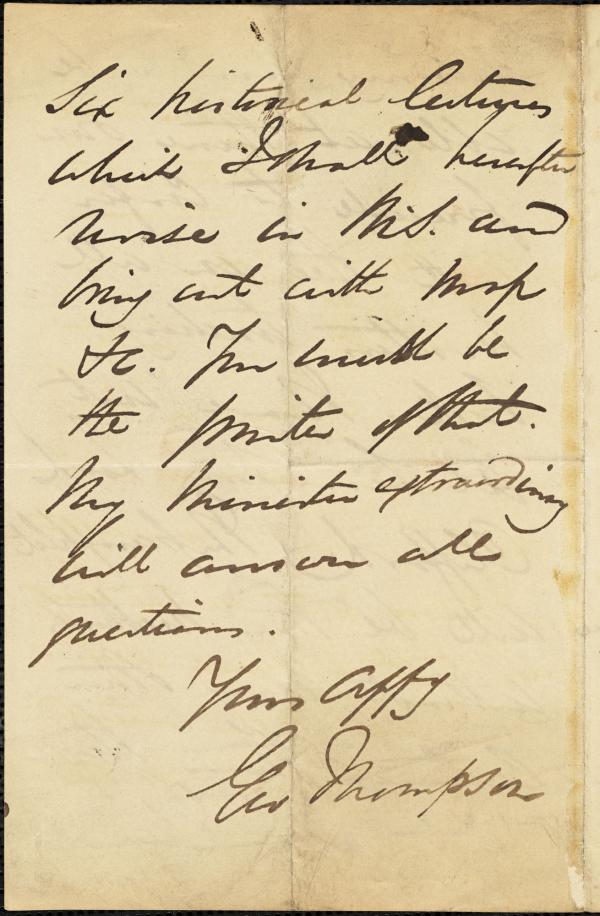 Six historical lectures
which I shall hereafter
revise in MS. and
bring out with Map
&c. You must be
the printer of that.
My Minister extraordinary
will answer all
questions.
Yours affy
Geo Thompson